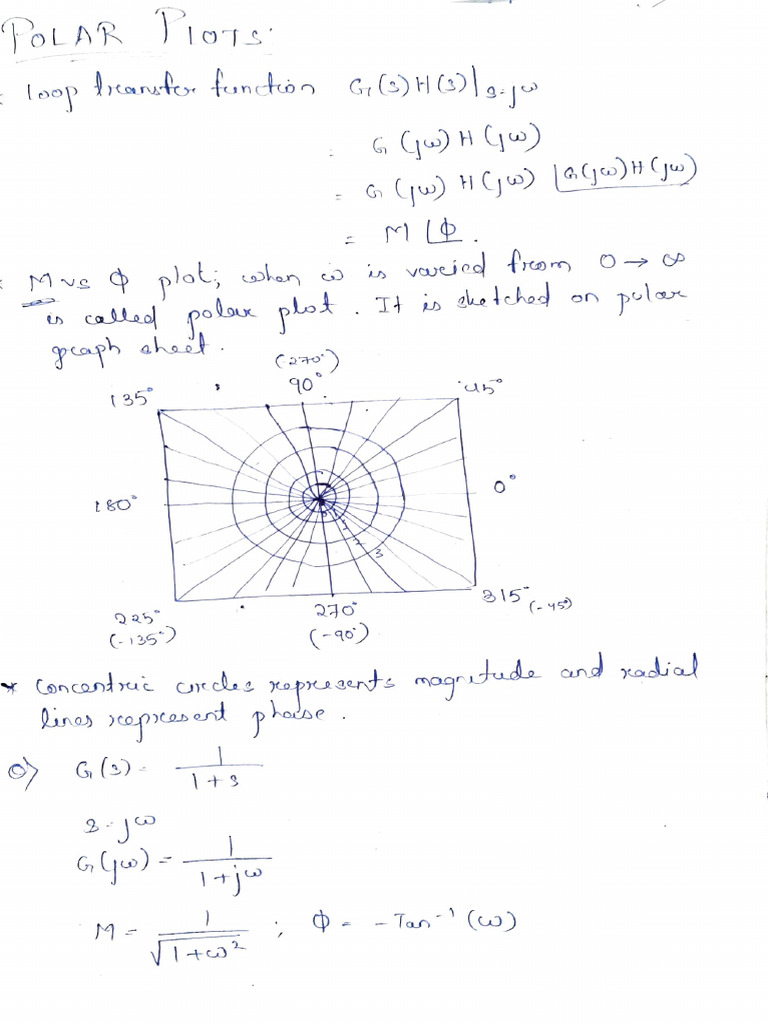 POLAR PLOTS:
loop transfer function G(s)H(s)|s=jω
= G(jω)H(jω)
= G(jω)H(jω) ∠G(jω)H(jω)
= M ∠Φ.
M vs Φ plot; when ω is varied from 0→∞
is called polar plot. It is sketched on polar
graph sheet.
(270°)
135° 90° 45°
180° 0°
1
2
3
225° 270° 315° (-45°)
(-135°) (-90°)
* Concentric circles represents magnitude and radial
lines represent phase.
Q) G(s) = 1/(1+s)
s=jω
G(jω) = 1/(1+jω)
M = 1/√(1+ω²) ; Φ = -Tan⁻¹(ω)